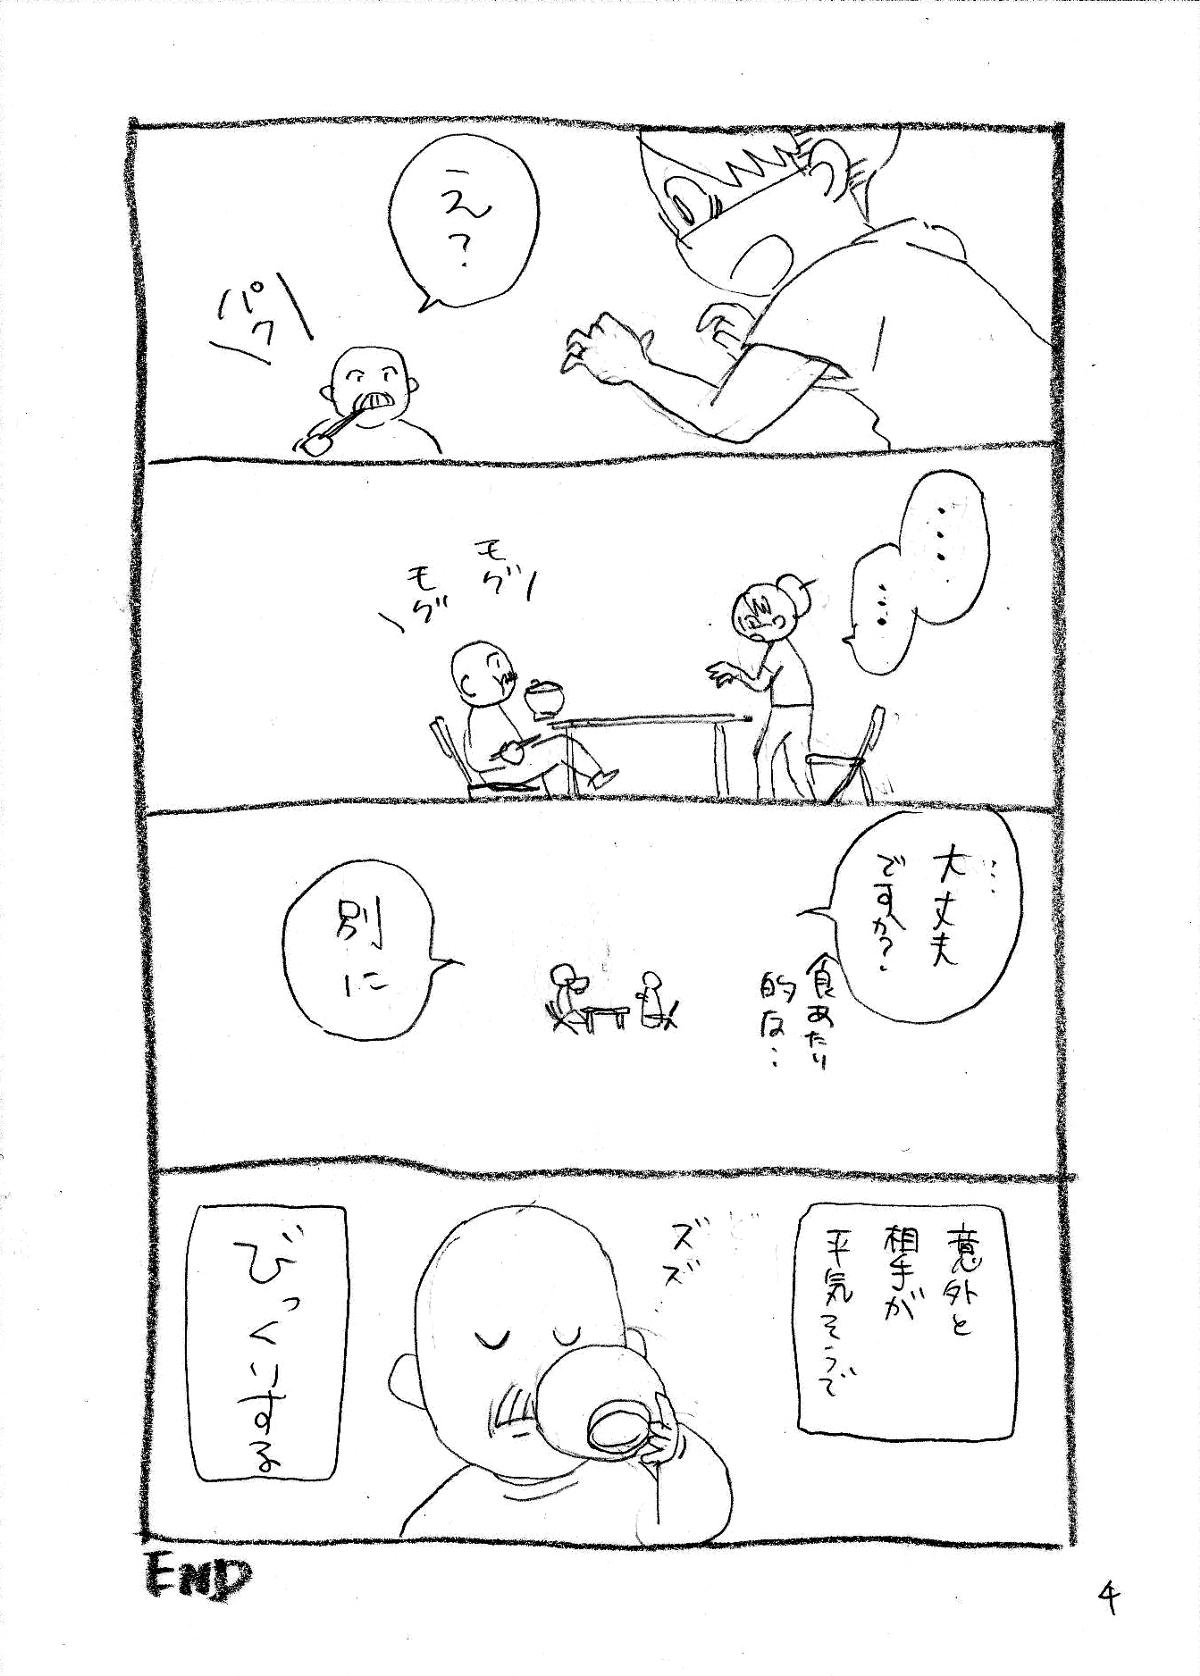 え?
パク
‥‥
‥‥
モグ
モグ
…大丈夫
ですか?
食あたり
的な…
別に
意外と
相手が
平気そうで
ズズ…
びっくりする
END
4